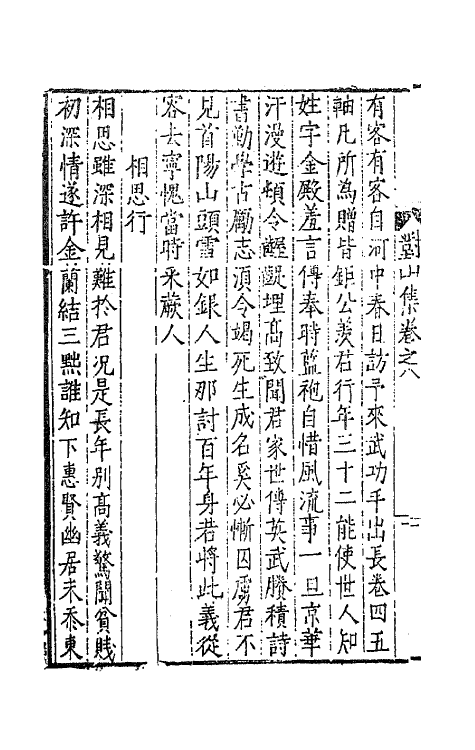 對山集卷之八
有客有客自河中春日訪予來武功手出長卷四五
軸凡所為贈皆鉅公羨君行年三十二能使世人知
姓字金殿羞言傳奉時藍袍自惜風流事一旦京華
汗漫遊頓令齷齪埋高致聞君家世傳英武賸積詩
書勤學古勵志須令竭死生成名奚必慚囚虜君不
見首陽山頭雪如銀人生那討百年身若將此義從
容去寧愧當時采蕨人
相思行
相思雖深相見難於君况是長年別高義驚聞貧賤
初深情遂許金蘭結三黜誰知下惠賢幽居未忝東